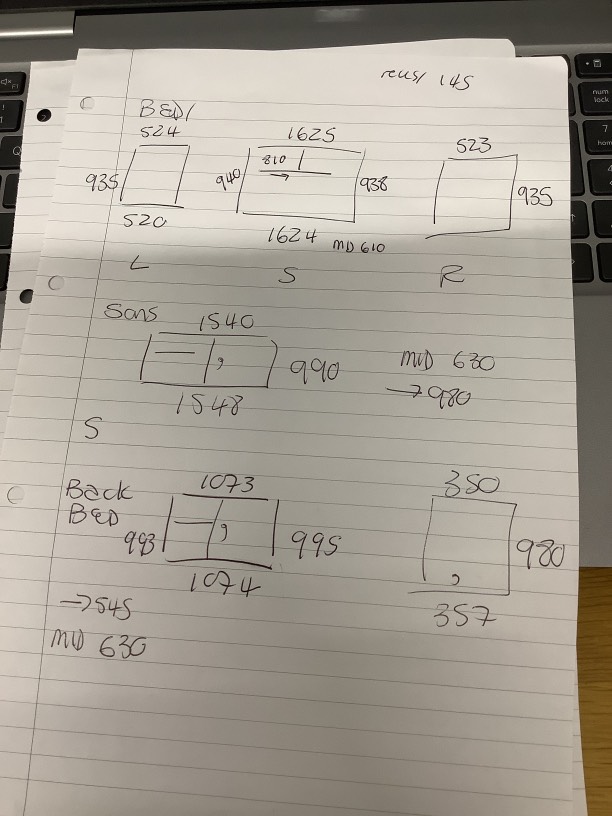 145
BED1
524
1625
523
935
940
810
938
935
520
1624 MD 610
L
S
R
Sons
1540
990
MD 630
→980
1548
S
Back
BED
1073
350
993
995
980
1074
357
→545
MD 630
num
lock
7
home